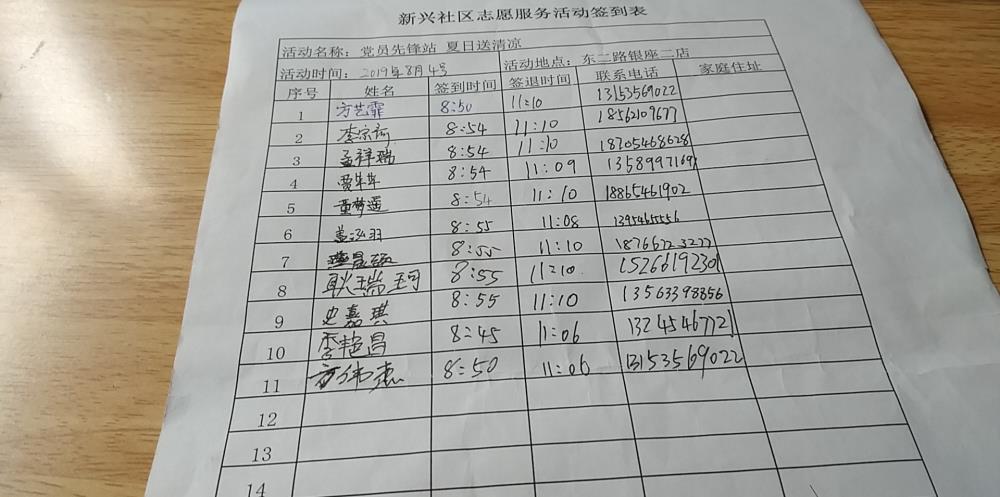 新兴社区志愿服务活动签到表
活动名称：党员先锋站 夏日送清凉
活动地点：东二路银座二店
活动时间：2019年8月4号
序号 姓名 签到时间 签退时间 联系电话 家庭住址
1 方艺霏 8:50 11:10 13153569022
2 李宗 8:54 11:10 18562109677
3 孟祥瑞 8:54 11:10 18705468628
4 8:54 11:09 13589971697
5 董梦遥 8:54 11:10 18865461902
6 姜泓羽 8:55 11:08
7 8:55 11:10
8 耿瑞珂 8:55 11:10 15266192301
9 史嘉琪 8:55 11:10 13563398356
10 李艳昌 8:45 11:06 13245467721
11 方伟杰 8:50 11:06 13153569022
12
13
14